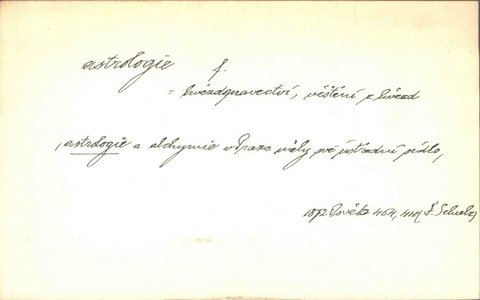 astrologie f.
= hvězdopravectví, věštění z hvězd
„astrologie a alchymie v Praze měly své ústřední sídlo„
1872 Osvěta 464,